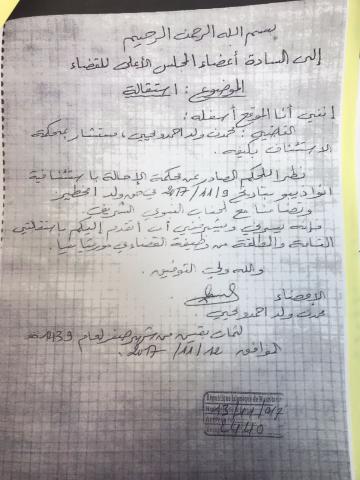 بسم الله الرحمن الرحيم
إلى السادة أعضاء المجلس الأعلى للقضاء
الموضوع : استقالة
إنني أنا الموقع أسفله :
القاضي : محمدن ولد احمدو يحيى ، مستشار بمحكمة
الاستئناف بكيفه .
نظرا للحكم الصادر عن محكمة الإحالة باستئنافية
انواذيبو بتاريخ 2017/11/9 في حق ولد امخيطير
وتضامنا مع الجناب النبوي الشريف
فإنه يسرني ويشرفني أن أتقدم إليكم باستقالتي
التامة والمطلقة من وظيفة القضاء في موريتانيا .
والله ولي التوفيق .
الإمضاء
محمدن ولد احمدو يحيى
لثمان بقين من شهر صفر لعام 1439 هـ
الموافق 2017/11/12 .
République Islamique de Mauritanie
13/11/017